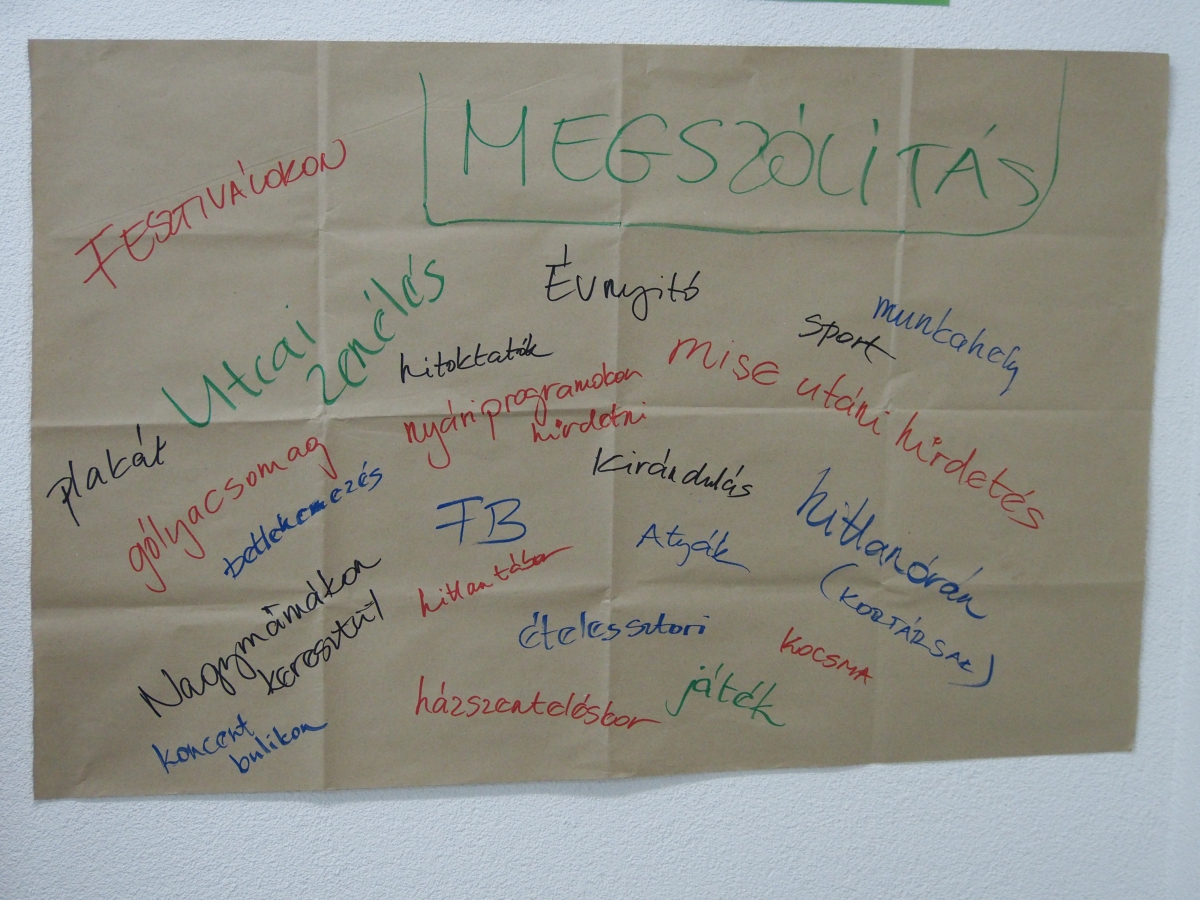 MEGSZÓLÍTÁS
FESZTIVÁLOKON
Évnyitó
Utcai
zenélés
munkahely
sport
hitoktatók
mise utáni hirdetés
nyári programokon
hirdetni
plakát
gólyacsomag
Kirándulás
betlehemezés
FB
Atyák
hittanórán
(KORTÁRSAK)
Nagymámákon
keresztül
hittantábor
ételessztori
KOCSMA
házszenteléskor
játék
koncert
bulikon